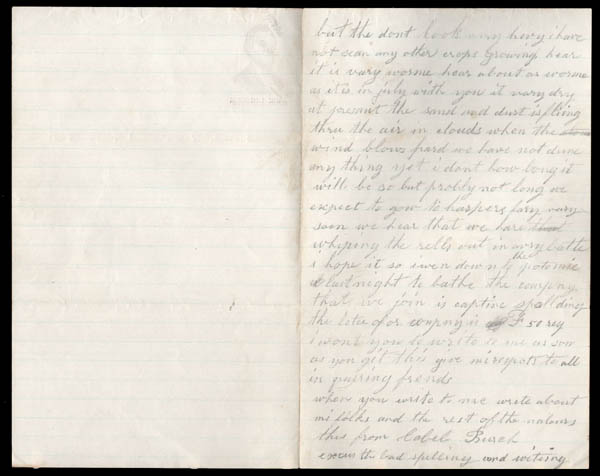 but the dont look very hevy i have
not sean any other crops growing hear
it is vary worme hear about as worme
as it is in july with you it vary dry
at presant the sand and dust is fliing
thru the air in clouds when the
wind blows hard we have not dune
any thing yet i dont how long it
will be so but probly not long we
expect to gow to harpers fary vary
soon we hear that we are
whiping the rells out in evry battle
i hope it so i wen down to the potomic
last night to bathe the company
that we join is captive spallding
the letter of or compny is F 50 reg
i wont you to write to me as soon
as you git this give mi respets to all
in quiring frends
when you write to me write about
mi folks and the rest of the nabours
this from Calel Beach
excuis the bad spelling and writing